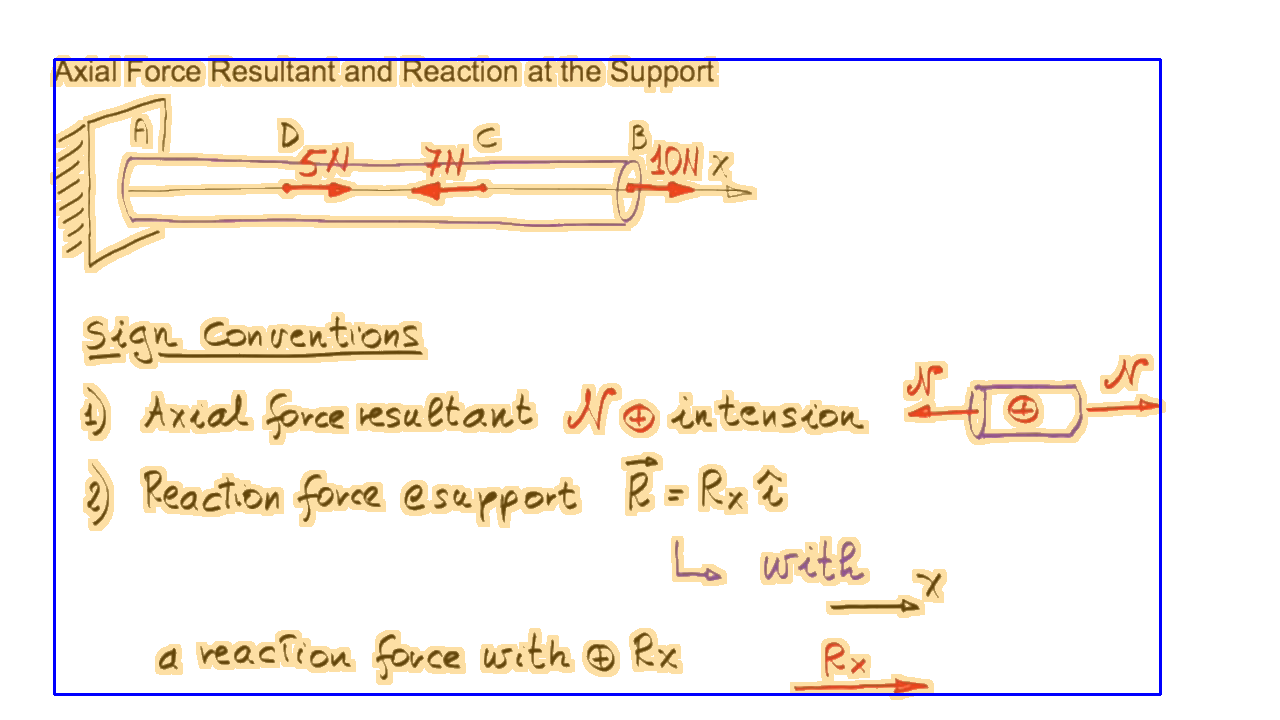 Axial Force Resultant and Reaction at the Support
A D C B
5N 7N 10N x
Sign Conventions
N N
1) Axial force resultant N ⊕ in tension ⊕
2) Reaction force @ support R⃗ = Rx î
↳ with x
a reaction force with ⊕ Rx Rx